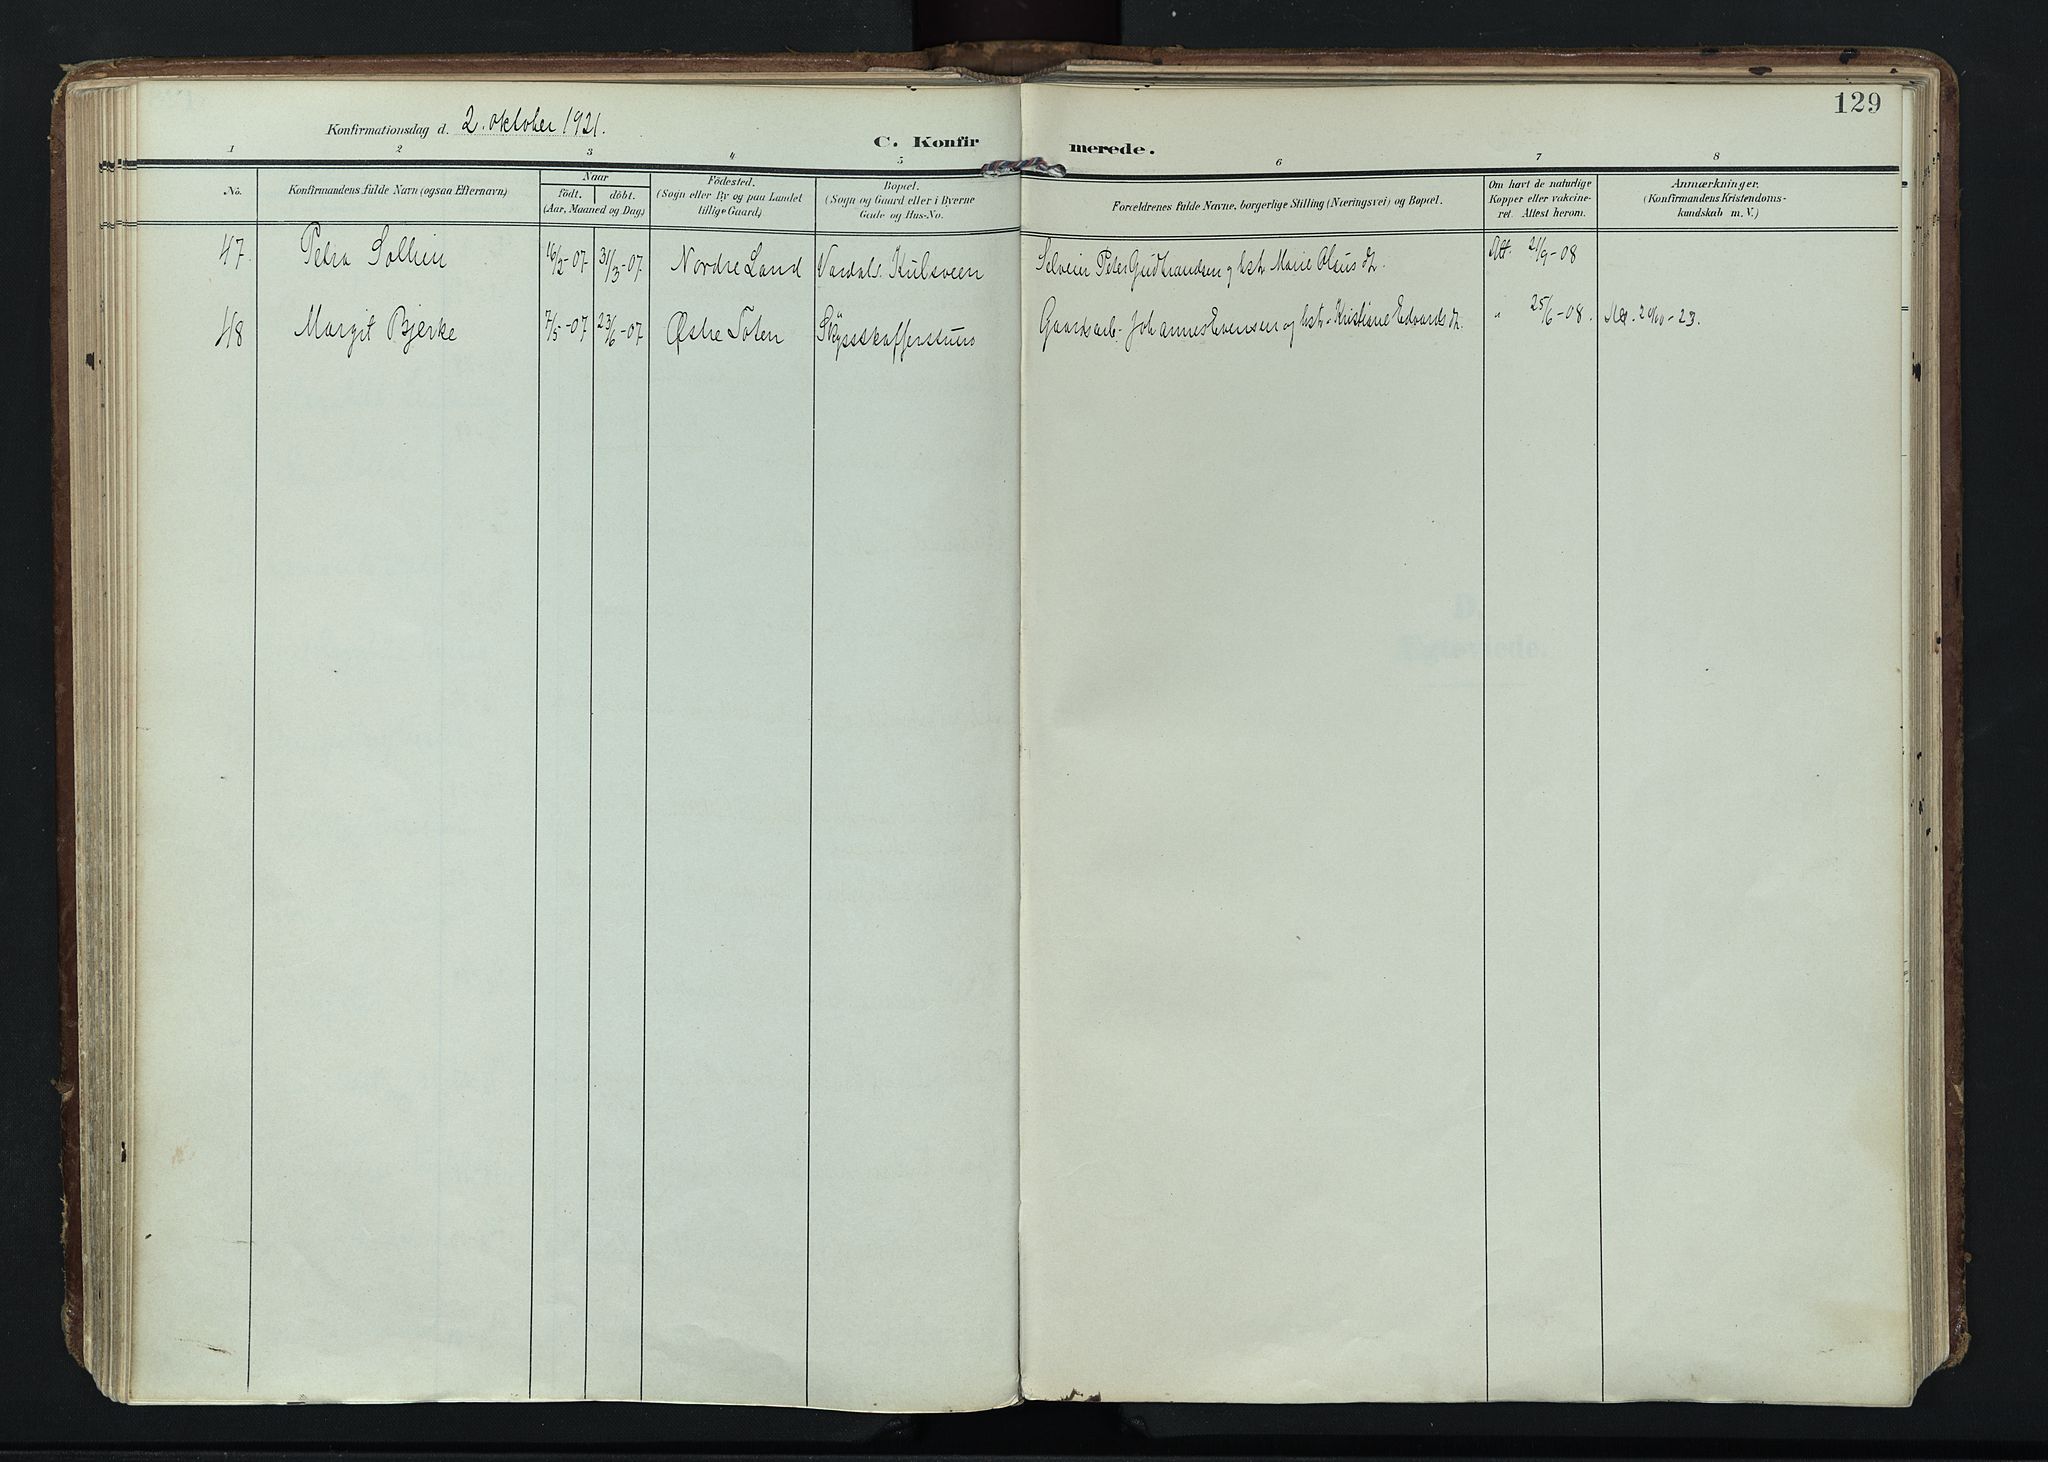 129
Konfirmationsdag d. 2. oktober 1921.
C. Konfirmerede.
1 2 3 4 5 6 7 8
No.
Konfirmandens fulde Navn (ogsaa Efternavn)
Naar
födt. döbt.
(Aar, Maaned og Dag.)
Födested.
(Sogn eller By og paa Landet
tillige Gaard.)
Bopæl.
(Sogn og Gaard eller i Byerne
Gade og Hus-No.
Forældrenes fulde Navne, borgerlige Stilling (Næringsvei) og Bopæl.
Om havt de naturlige
Kopper eller vakcine-
ret. Attest herom.
Anmærkninger.
(Konfirmandens Kristendoms-
kundskab m. V.)
47. Petra Sollien 16/2-07 31/3-07 Nordre Land Vardal. Kulsveen Selveier Peter Gudbrandsen og hstr Marie Olausdtr. Att. 21/9-08
48 Margit Bjerke 7/5-07 23/6-07 Østre Toten Skysskafferstuen Gaardsarb. Johannes Evensen og hstr. Kristiane Edvardsdtr. " 25/6-08. 29/10-23.